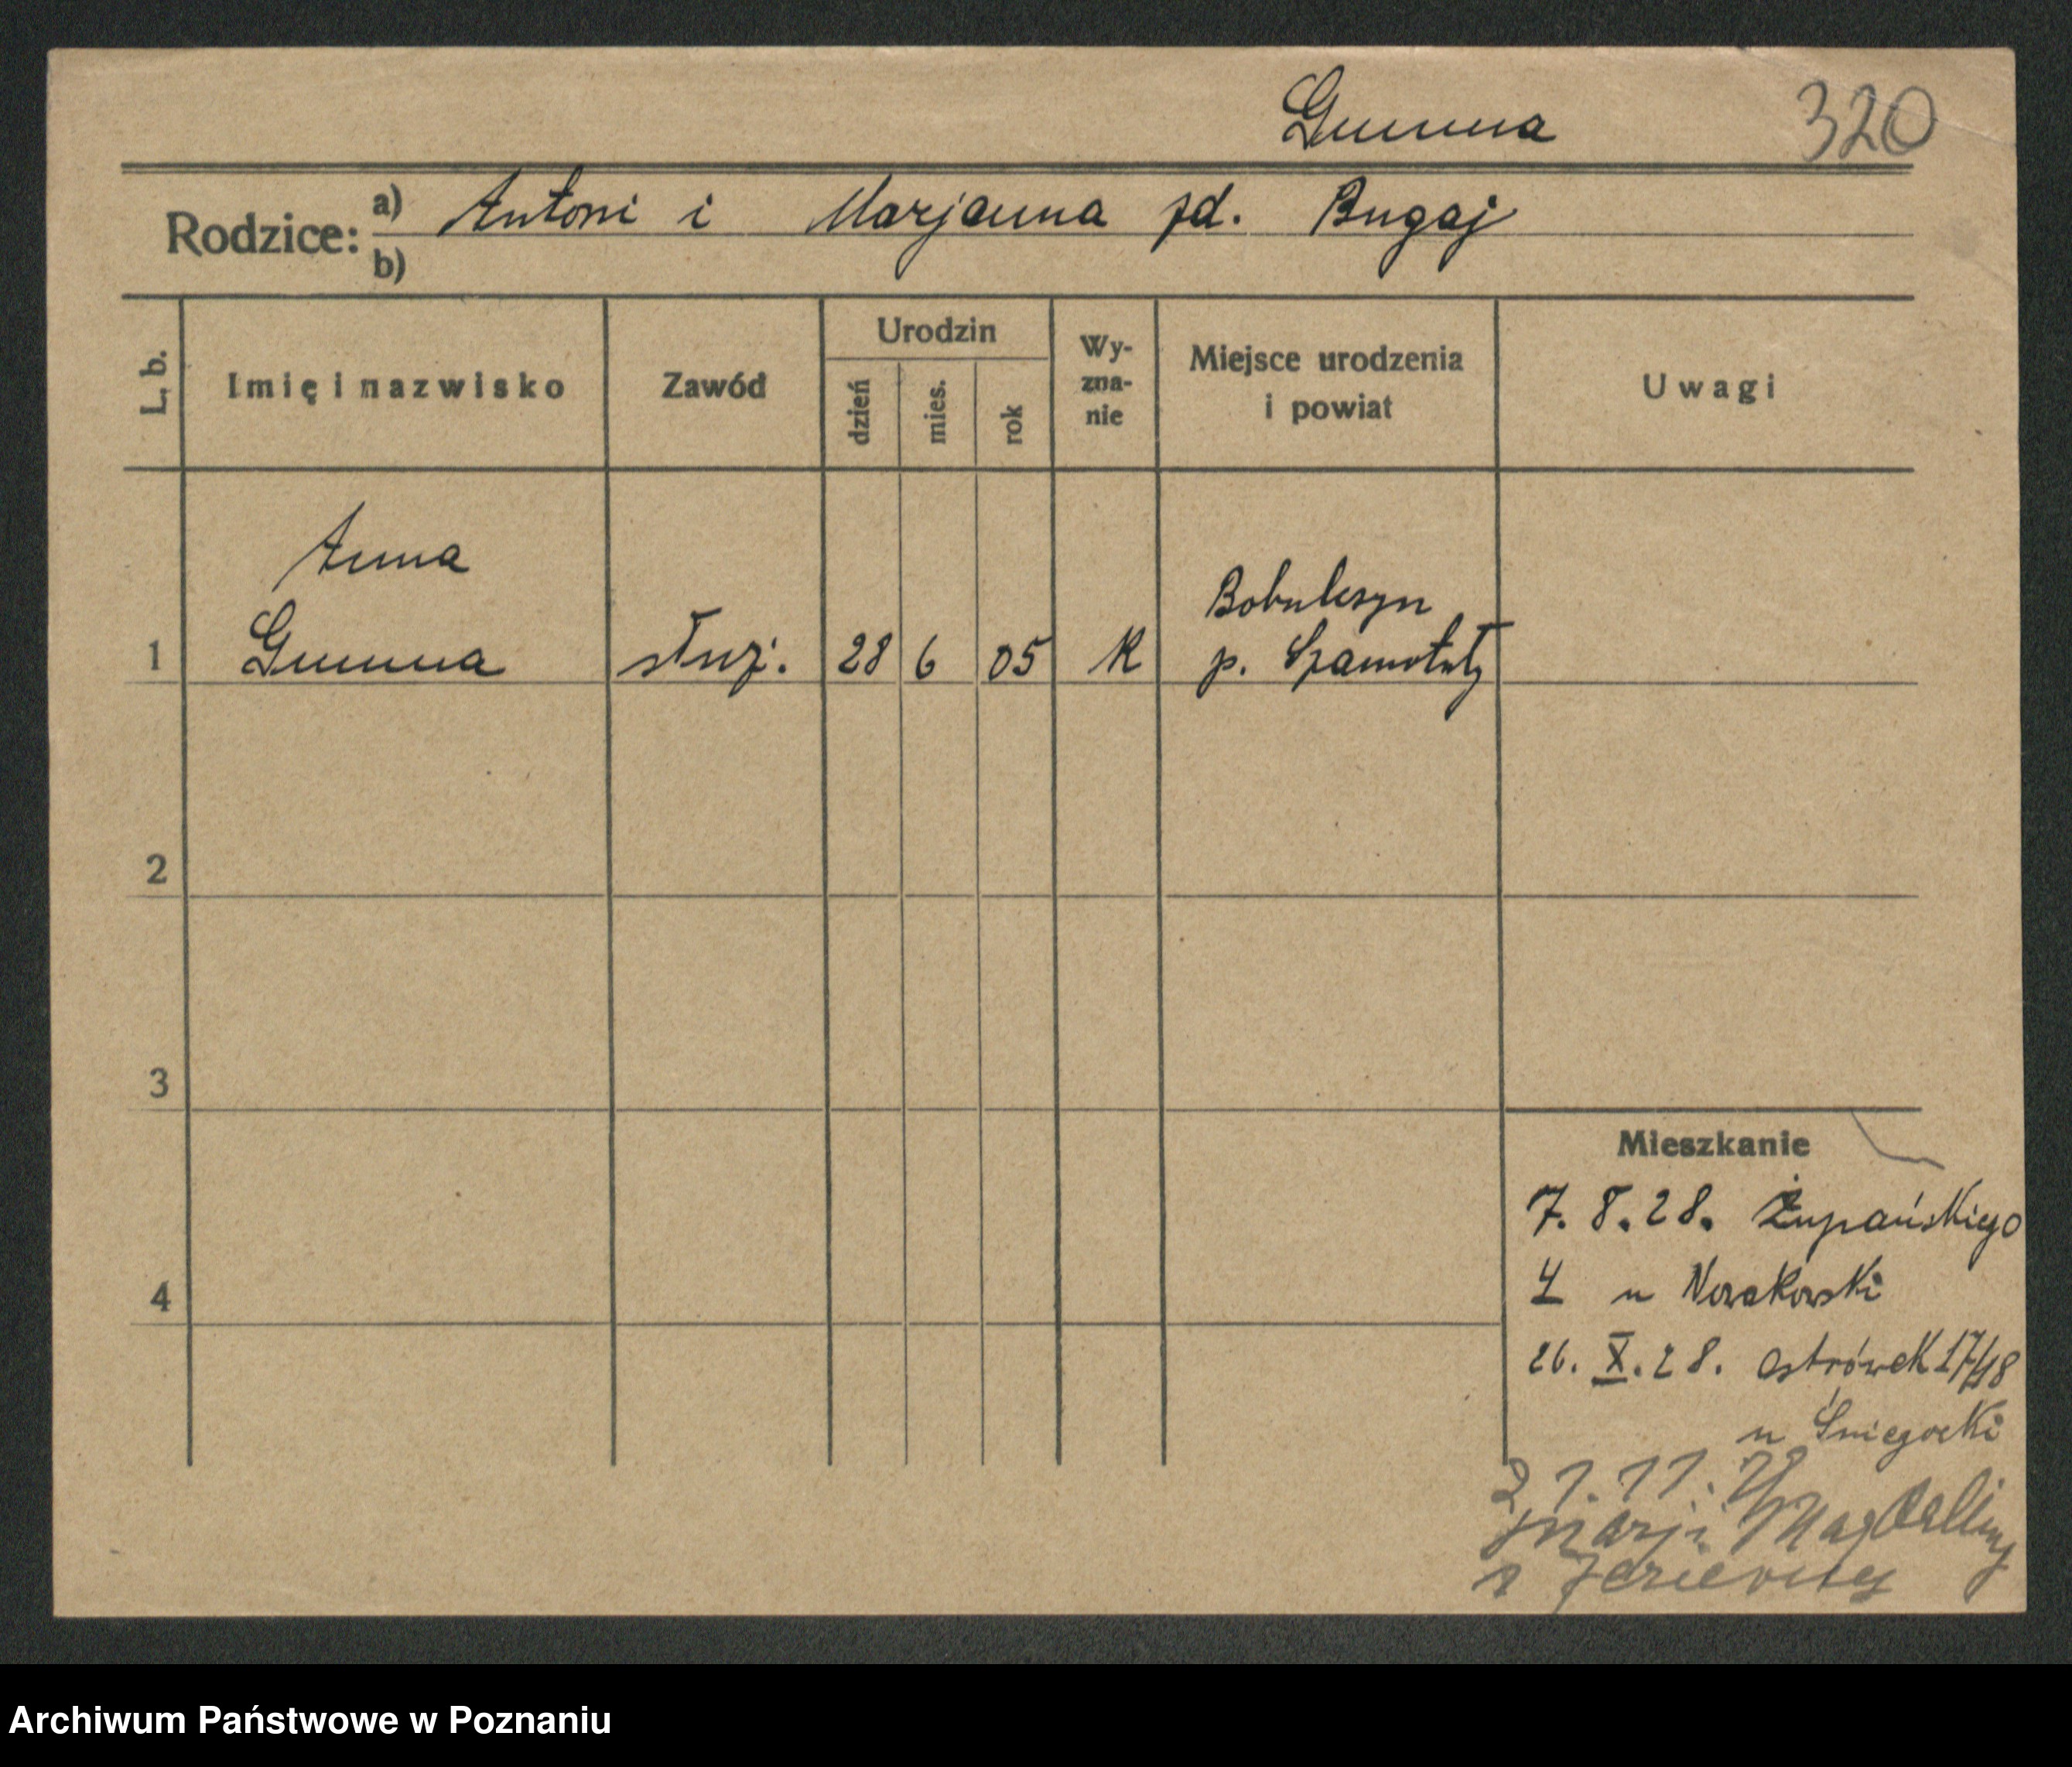 Gumna 320
Rodzice: a) Antoni i Marjanna zd. Bugaj
b)
L. b. Imię i nazwisko Zawód Urodzin dzień mies. rok Wy-zna-nie Miejsce urodzenia i powiat Uwagi
Anna
Bobulczyn
1 Gumna służ. 28 6 05 K p. Szamotuły
2
3
Mieszkanie
7. 8. 28. Żupańskiego
4
4 u Nowakowski
26. X. 28. Ostrówek 17/18
u Śniegocki
21. 11.
Marji Magdaleny